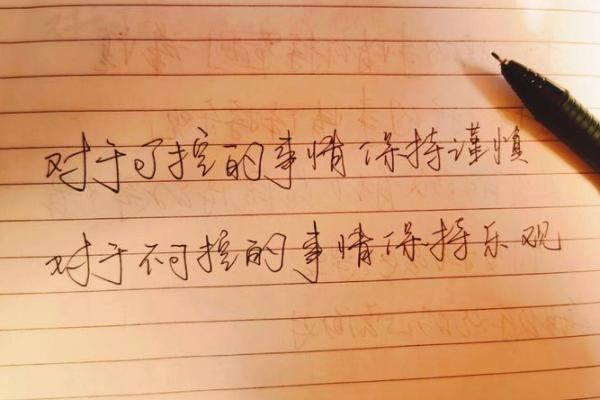 对于可控的事情保持谨慎
对于不可控的事情保持乐观